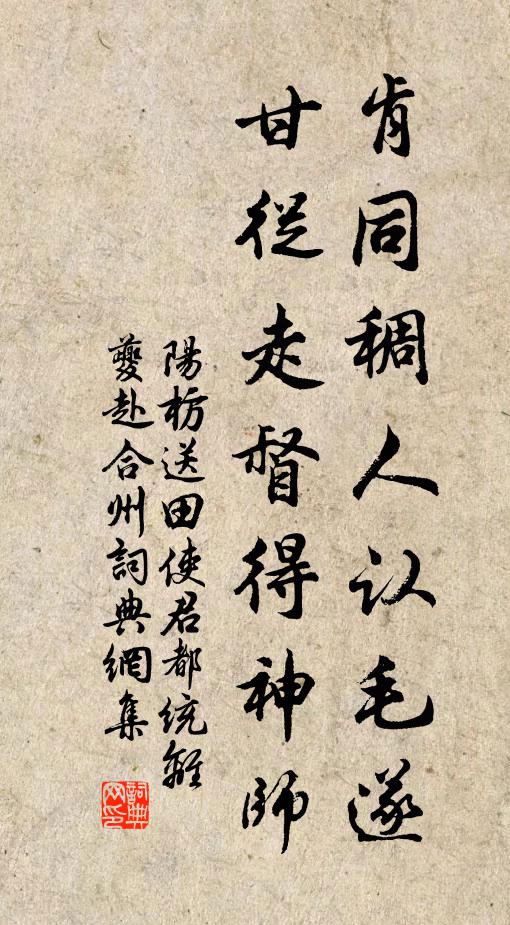 肯同稠人认毛遂
甘從走督得神師
陽枋送田使君都統離
夔赴合州詞典網集
詞典
网印